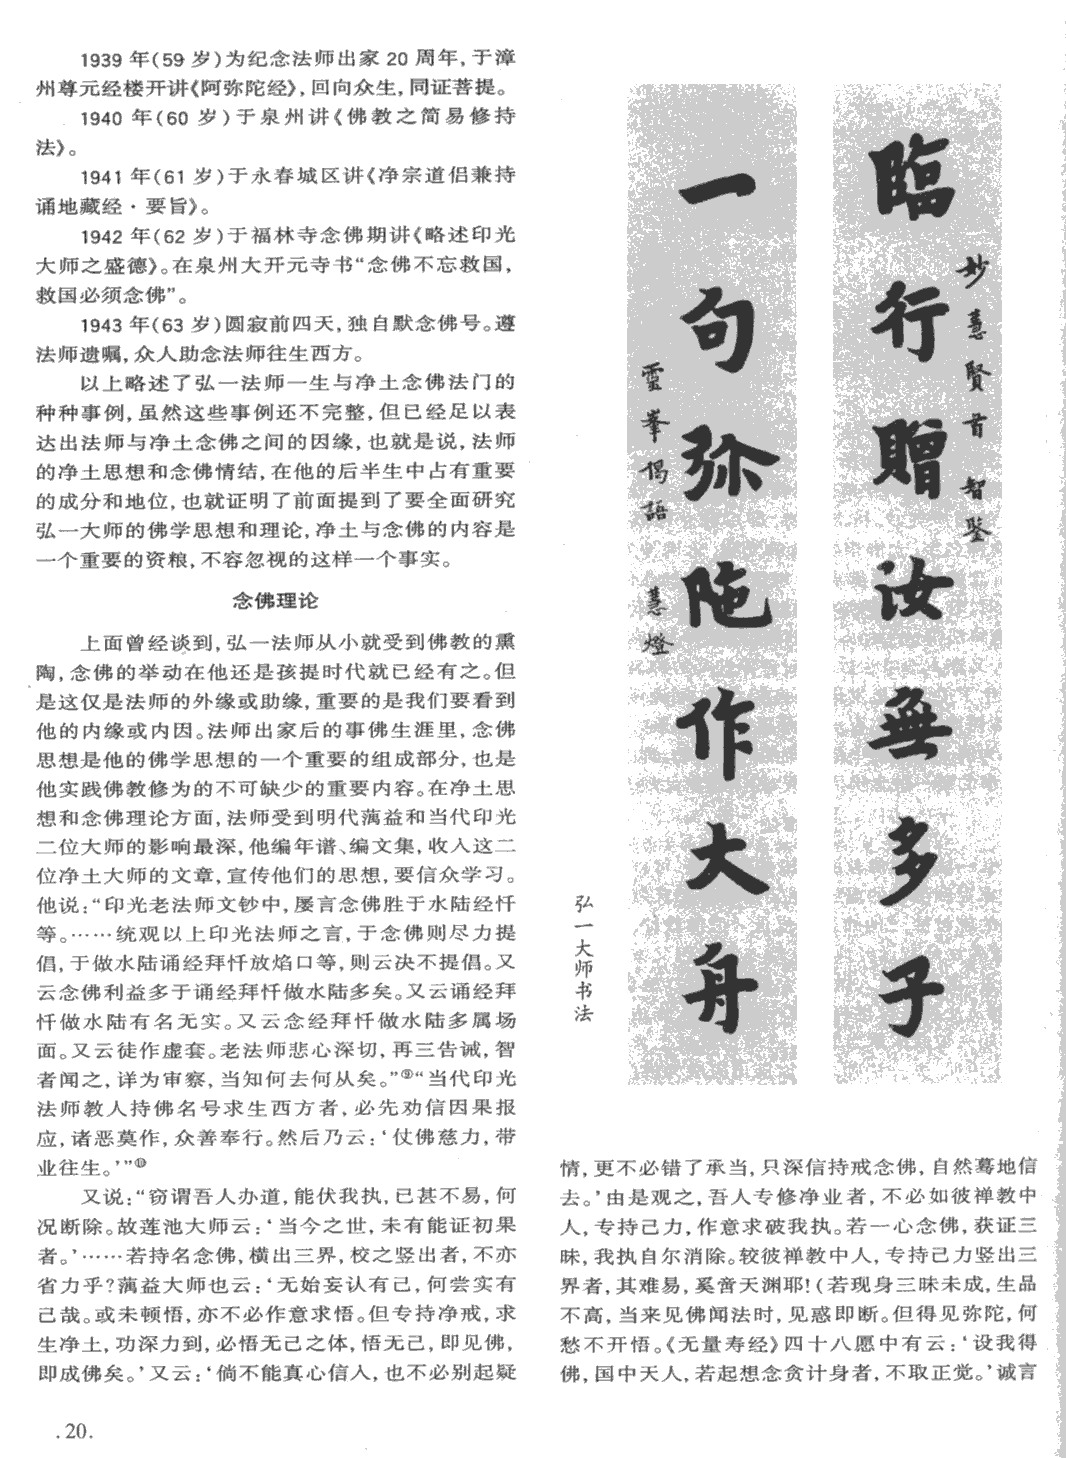 1939 年(59 岁)为纪念法师出家 20 周年,于漳
州尊元经楼开讲《阿弥陀经》,回向众生,同证菩提。
1940 年(60 岁)于泉州讲《佛教之简易修持
法》。
1941 年(61 岁)于永春城区讲《净宗道侣兼持
诵地藏经·要旨》。
1942 年(62 岁)于福林寺念佛期讲《略述印光
大师之盛德》。在泉州大开元寺书“念佛不忘救国,
救国必须念佛”。
1943 年(63 岁)圆寂前四天,独自默念佛号。遵
法师遗嘱,众人助念法师往生西方。
以上略述了弘一法师一生与净土念佛法门的
种种事例,虽然这些事例还不完整,但已经足以表
达出法师与净土念佛之间的因缘,也就是说,法师
的净土思想和念佛情结,在他的后半生中占有重要
的成分和地位,也就证明了前面提到了要全面研究
弘一大师的佛学思想和理论,净土与念佛的内容是
一个重要的资粮,不容忽视的这样一个事实。
念佛理论
上面曾经谈到,弘一法师从小就受到佛教的熏
陶,念佛的举动在他还是孩提时代就已经有之。但
是这仅是法师的外缘或助缘,重要的是我们要看到
他的内缘或内因。法师出家后的事佛生涯里,念佛
思想是他的佛学思想的一个重要的组成部分,也是
他实践佛教修为的不可缺少的重要内容。在净土思
想和念佛理论方面,法师受到明代蕅益和当代印光
二位大师的影响最深,他编年谱、编文集,收入这二
位净土大师的文章,宣传他们的思想,要信众学习。
他说:“印光老法师文钞中,屡言念佛胜于水陆经忏
等。……统观以上印光法师之言,于念佛则尽力提
倡,于做水陆诵经拜忏放焰口等,则云决不提倡。又
云念佛利益多于诵经拜忏做水陆多矣。又云诵经拜
忏做水陆有名无实。又云念经拜忏做水陆多属场
面。又云徒作虚套。老法师悲心深切,再三告诫,智
者闻之,详为审察,当知何去何从矣。”⑨“当代印光
法师教人持佛名号求生西方者,必先劝信因果报
应,诸恶莫作,众善奉行。然后乃云:‘仗佛慈力,带
业往生。’”⑩
又说:“窃谓吾人办道,能伏我执,已甚不易,何
况断除。故莲池大师云:‘当今之世,未有能证初果
者。’……若持名念佛,横出三界,校之竖出者,不亦
省力乎?蕅益大师也云:‘无始妄认有己,何尝实有
己哉。或未顿悟,亦不必作意求悟。但专持净戒,求
生净土,功深力到,必悟无己之体,悟无己,即见佛,
即成佛矣。’又云:‘倘不能真心信入,也不必别起疑
臨行贈汝無多子
妙慧賢首 智鑒
一句弥陀作大舟
靈峯偈語 慧燈
弘一大师书法
情,更不必错了承当,只深信持戒念佛,自然蓦地信
去。’由是观之,吾人专修净业者,不必如彼禅教中
人,专持己力,作意求破我执。若一心念佛,获证三
昧,我执自尔消除。较彼禅教中人,专持己力竖出三
界者,其难易,奚啻天渊耶!(若现身三昧未成,生品
不高,当来见佛闻法时,见惑即断。但得见弥陀,何
愁不开悟。《无量寿经》四十八愿中有云:‘设我得
佛,国中天人,若起想念贪计身者,不取正觉。’诚言
.20.